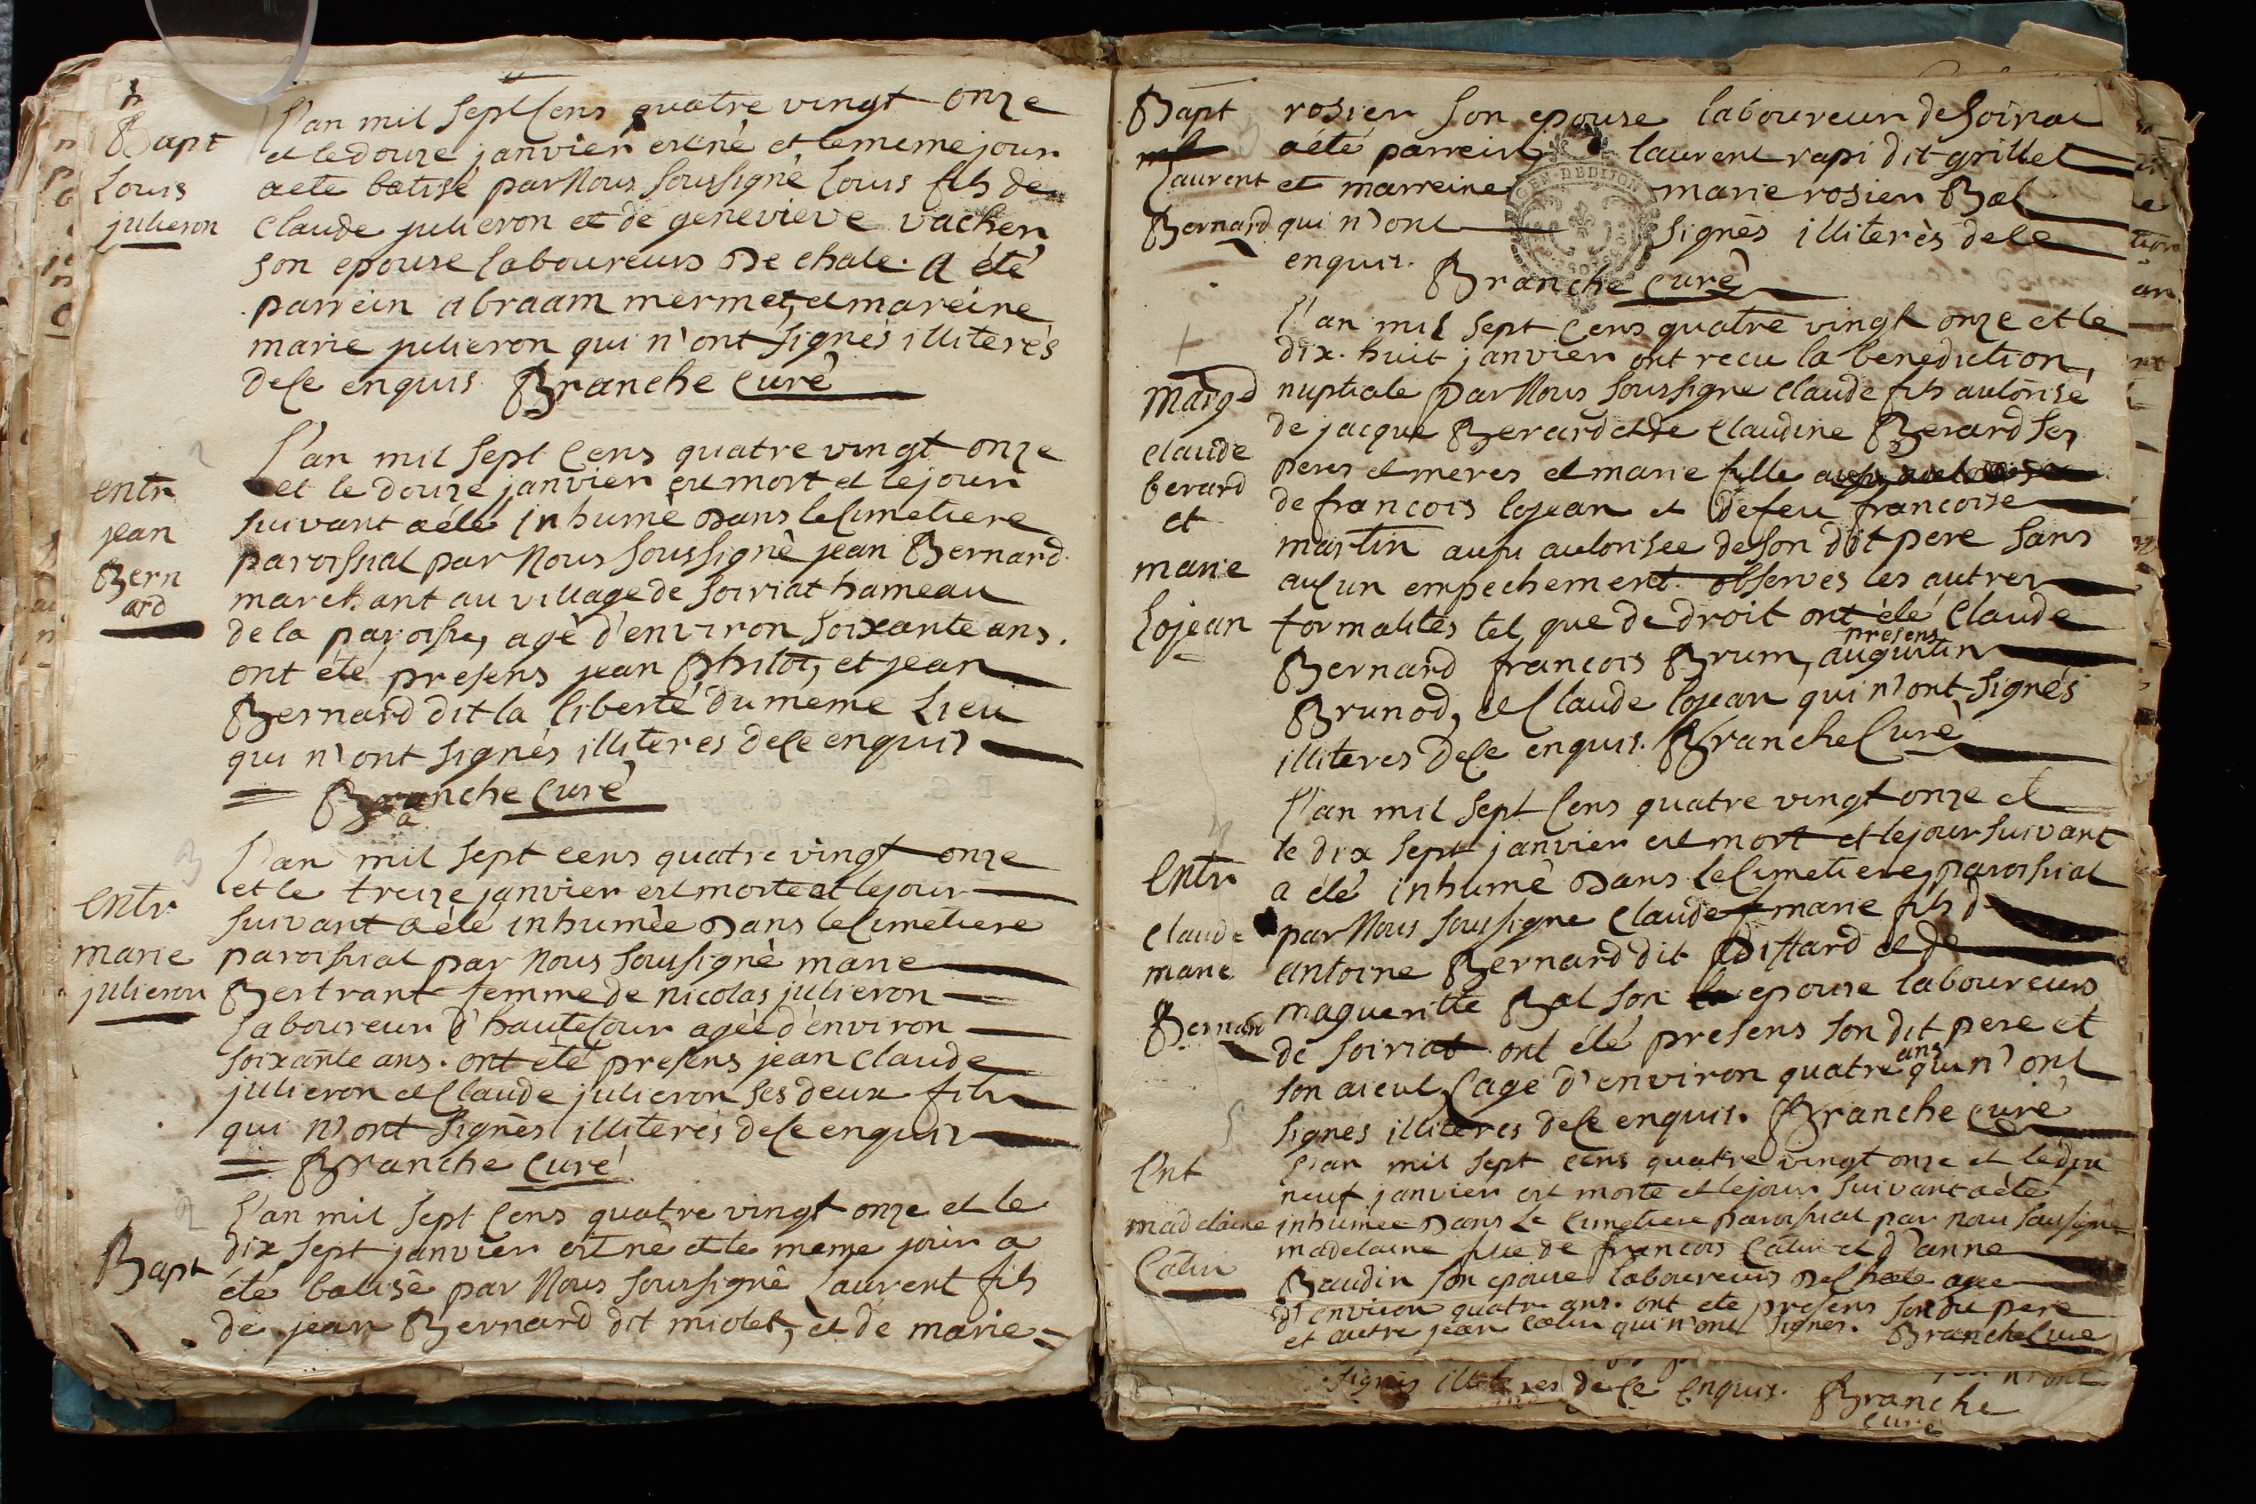 Bapt
Louis
julieron
L'an mil sept Cens quatre vingt onze
et le douze janvier est né et le meme jour
a eté batisé par Nous soussigné Louis fils de
Claude julieron et de genevieve vacher
son epouse laboureurs de chale. a été
parrein abraam mermet, et mareine
marie julieron qui n'ont signés illiterés
de ce enquis Branche Curé
2
entr
jean
Bern
ard
L'an mil sept Cens quatre vingt onze
et le douze janvier est mort et le jour
suivant a été inhumé dans le Cimetiere
paroissial par Nous soussigné jean Bernard
marchant au village de soiriat hameau
de la paroisse, agé d'environ soixante ans.
ont été presens jean Philot, et jean
Bernard dit la liberté du meme Lieu
qui n'ont signés illiteres de ce enquis
Branche Curé
3
Entr
marie
julieron
L'an mil sept cens quatre vingt onze
et le treize janvier est morte et le jour
suivant a été inhumée dans le Cimetiere
paroissial par Nous soussigné marie
Bertrant femme de nicolas julieron
laboureur d'hautecour agée d'environ
soixante ans. ont été presens jean claude
julieron et Claude julieron ses deux fils
qui n'ont signés illiterés de ce enquis
Branche Curé
2
Bapt
L'an mil sept Cens quatre vingt onze et le
dix sept janvier est né et le meme jour a
été batisé par Nous soussigné Laurent fils
de jean Bernard dit miolet, et de marie
Bapt
Laurent
Bernard
rosier son epouse laboureur de soiriat
a été parrein laurent rapi dit grillet
et marreine marie rosier Bal
qui n'ont signés illiterés de ce
enquis. Branche curé
DE DIJON
Marge
claude
berard
et
marie
Lojean
L'an mil sept Cens quatre vingt onze et le
dix-huit janvier ont recu la benediction
nuptiale par Nous soussigne Claude fils autorisé
de jacque Berard et de Claudine Berard ses
peres et meres et marie fille
de francois lojean et de feu francoise
martin aussi autorisee de son dit pere sans
aucun empechement. observes les autres
formalités tel que de droit ont été presens Claude
Bernard francois Brum, augustin
Brunod, et Claude lojean qui n'ont signés
illiteres de ce enquis. Branche Curé
4
Entr
Claude
marie
Bernard
L'an mil sept Cens quatre vingt onze et
le dix sept janvier est mort et le jour suivant
a été inhumé dans le Cimetiere, paroissial
par Nous soussigne Claude marie fils d
antoine Bernard dit Dittard et de
magueritte Bal son epouse laboureurs
de soiriat ont été presens son dit pere et
son aieul, agé d'environ quatre ans qui n'ont
signes illiteres de ce enquis. Branche curé
5
Ent
madelaine
Catin
L'an mil sept cens quatre vingt onze et le dix
neuf janvier est morte et le jour suivant a été
inhumée dans le Cimetiere paroissial par nous soussigné
madelaine fille de francois Catin et d'anne
Baudin son epouse laboureurs de Chale agée
d'environ quatre ans. ont eté presens son dit pere
et autre jean catin qui n'ont signés. Branche Curé
n'ont
signés illiteres de ce enquis. Branche
curé